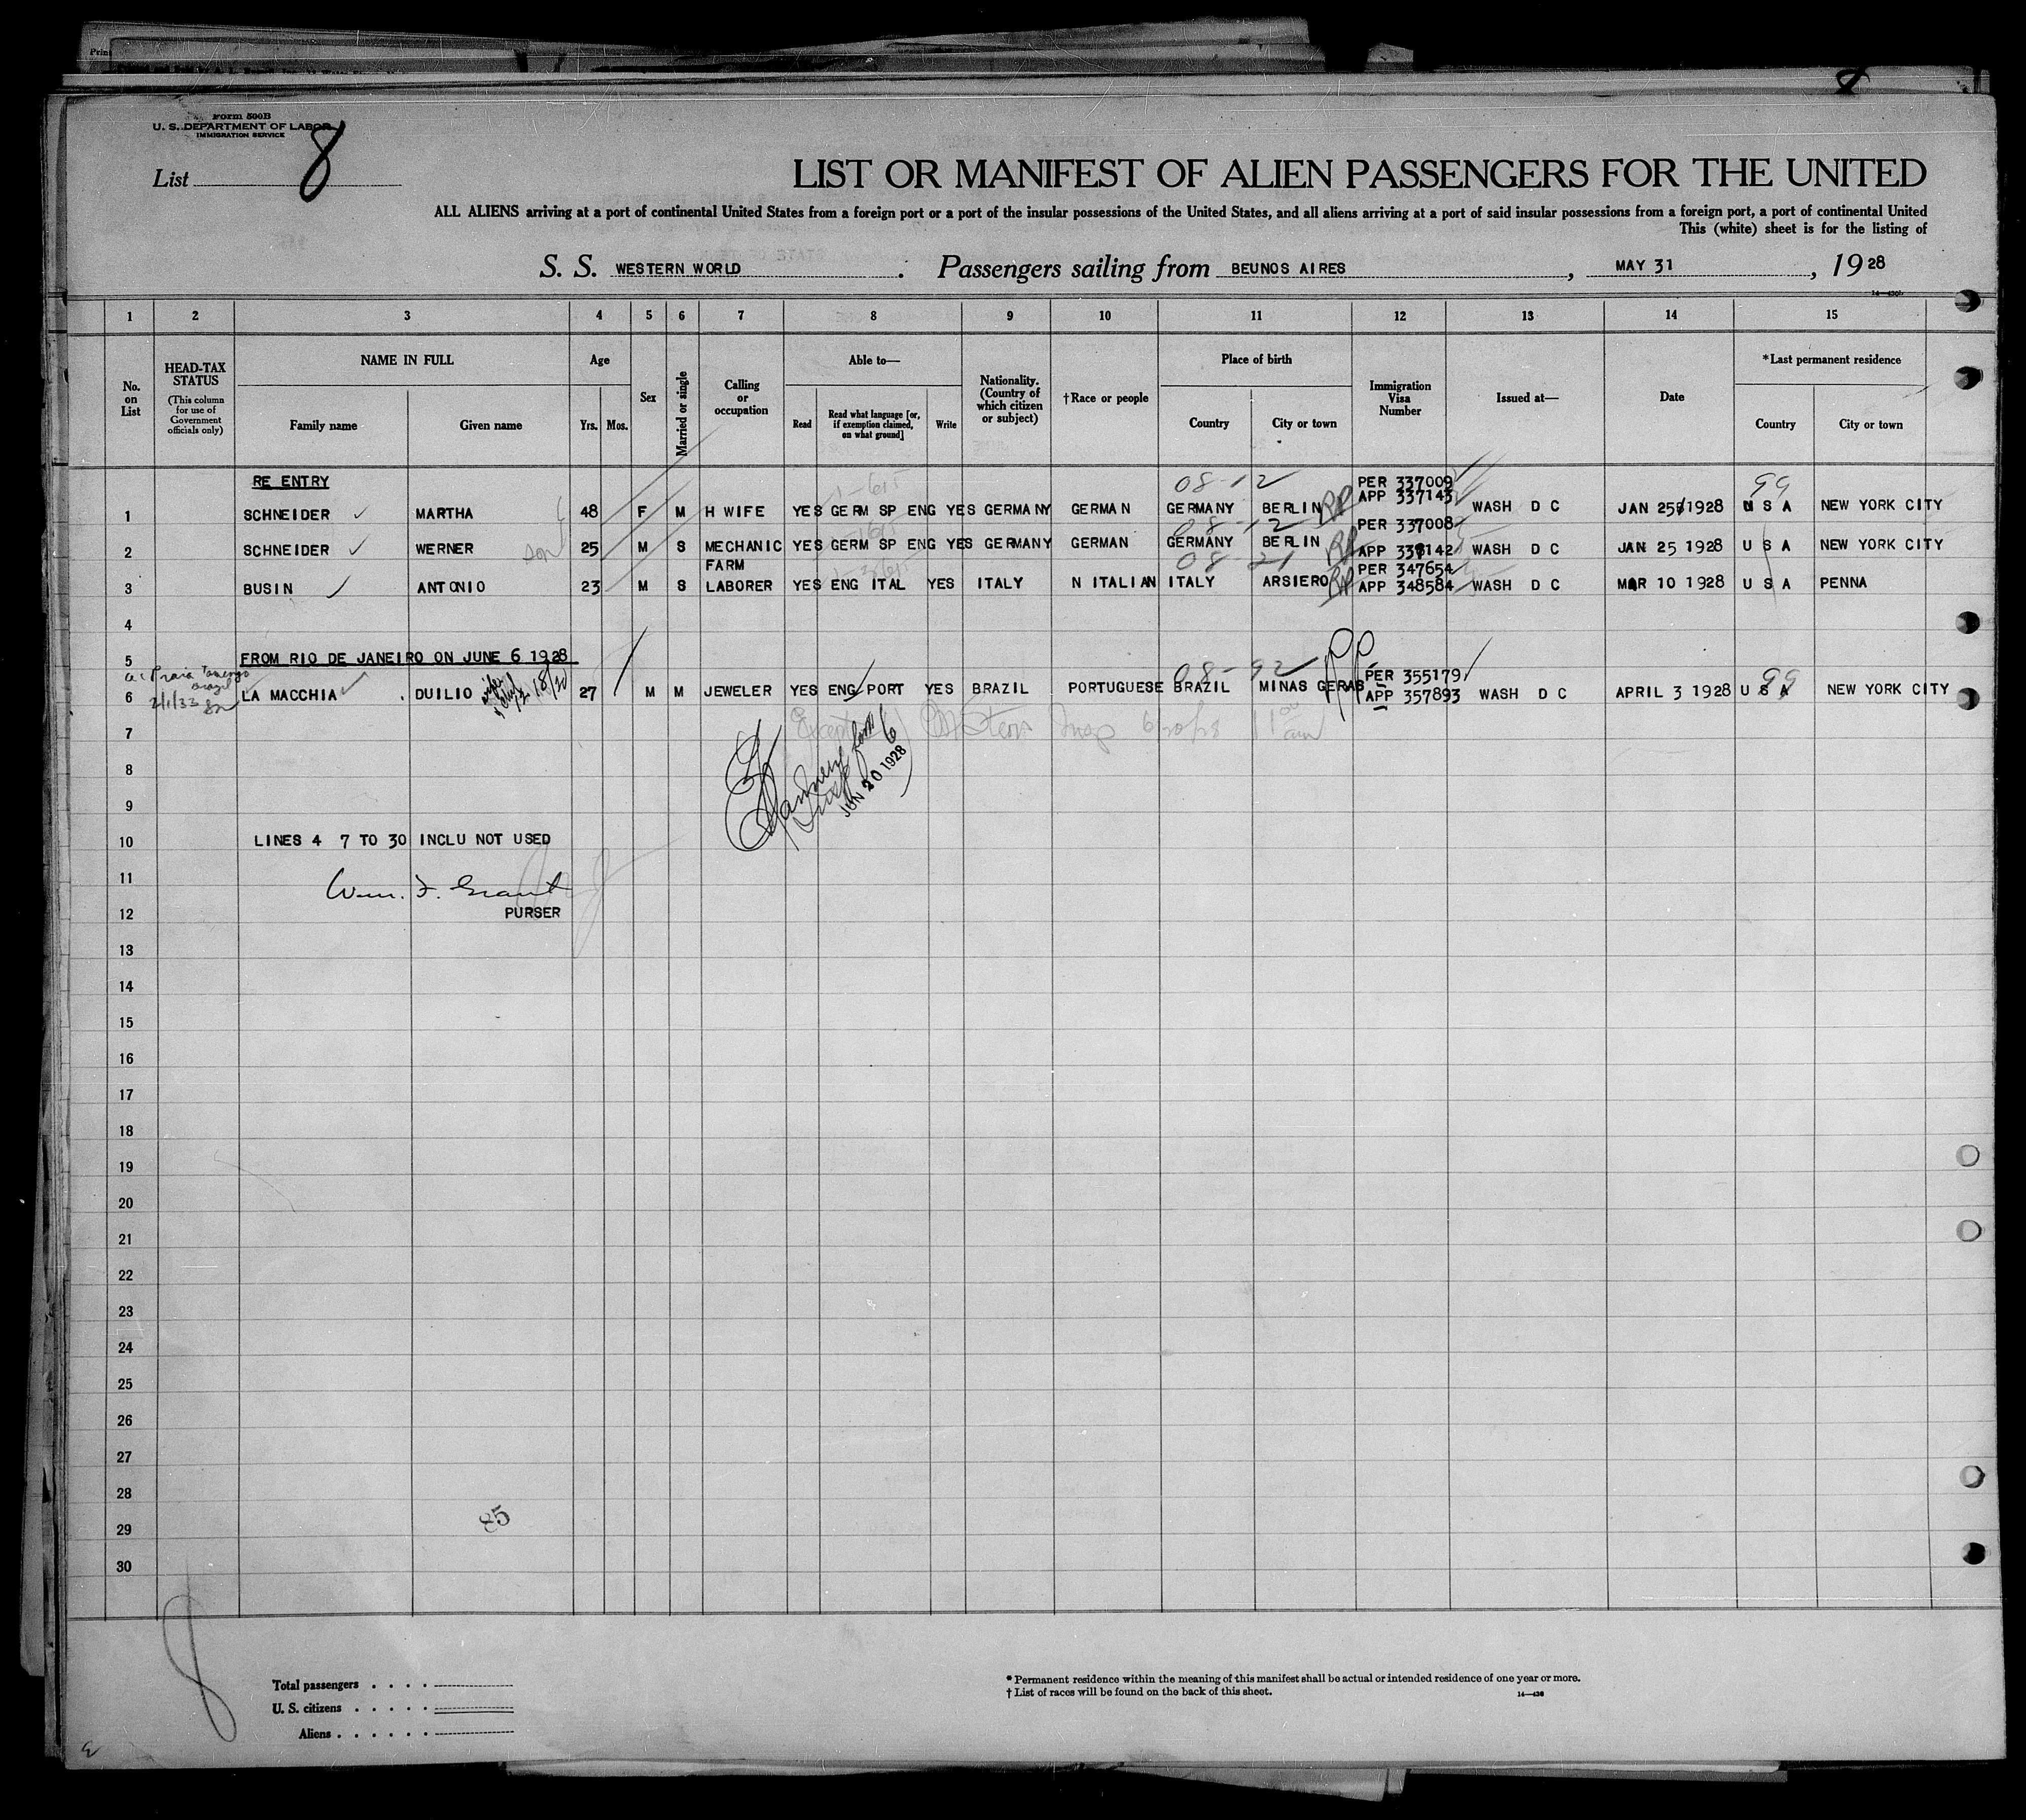 Form 500B
U. S. DEPARTMENT OF LABOR
IMMIGRATION SERVICE
List 8
LIST OR MANIFEST OF ALIEN PASSENGERS FOR THE UNITED
ALL ALIENS arriving at a port of continental United States from a foreign port or a port of the insular possessions of the United States, and all aliens arriving at a port of said insular possessions from a foreign port, a port of continental United
This (white) sheet is for the listing of
S. S. WESTERN WORLD . Passengers sailing from BEUNOS AIRES , MAY 31 , 19 28
1 2 3 4 5 6 7 8 9 10 11 12 13 14 15
No. on List
HEAD-TAX STATUS (This column for use of Government officials only)
NAME IN FULL Family name Given name
Age Yrs. Mos.
Sex
Married or single
Calling or occupation
Able to— Read Read what language [or, if exemption claimed, on what ground] Write
Nationality. (Country of which citizen or subject)
†Race or people
Place of birth Country City or town
Immigration Visa Number
Issued at—
Date
*Last permanent residence Country City or town
RE ENTRY 08-12 PER 337009 99
1 SCHNEIDER MARTHA 48 F M H WIFE YES GERM SP ENG YES GERMANY GERMAN GERMANY BERLIN RP APP 337143 WASH D C JAN 25 1928 U S A NEW YORK CITY
08-12 PER 337008
2 SCHNEIDER WERNER son 25 M S MECHANIC YES GERM SP ENG YES GERMANY GERMAN GERMANY BERLIN RP APP 337142 WASH D C JAN 25 1928 U S A NEW YORK CITY
FARM 08-21 PER 347654
3 BUSIN ANTONIO 23 M S LABORER YES ENG ITAL YES ITALY N ITALIAN ITALY ARSIERO RP APP 348584 WASH D C MAR 10 1928 U S A PENNA
4
5 FROM RIO DE JANEIRO ON JUNE 6 1928
08-92 RP PER 355179 99
6 2/1/33 LA MACCHIA DUILIO 27 M M JEWELER YES ENG PORT YES BRAZIL PORTUGUESE BRAZIL MINAS GERAS APP 357893 WASH D C APRIL 3 1928 U S A NEW YORK CITY
7
8
JUN 20 1928
9
10 LINES 4 7 TO 30 INCLU NOT USED
11 Wm. F. Grant
12 PURSER
13
14
15
16
17
18
19
20
21
22
23
24
25
26
27
28
85
29
30
8
Total passengers . . . .
U. S. citizens . . . . .
Aliens . . . . . .
* Permanent residence within the meaning of this manifest shall be actual or intended residence of one year or more.
† List of races will be found on the back of this sheet.
14—436